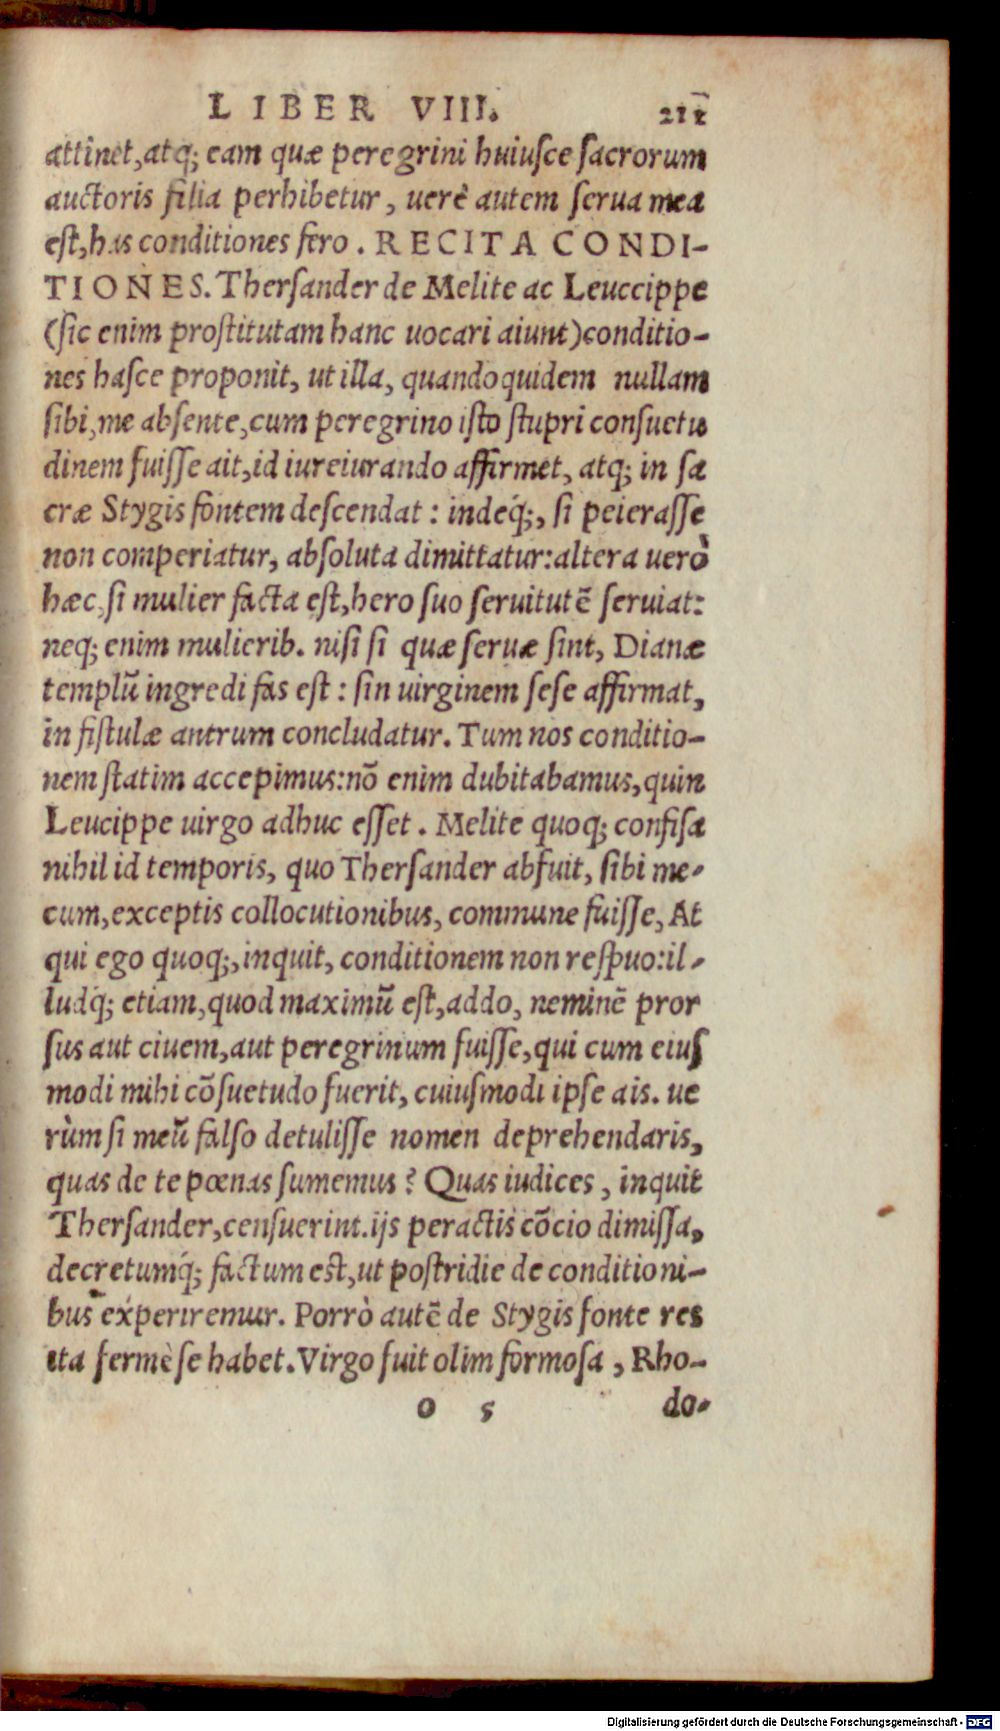 LIBER VIII. 211
attinet, atq; eam quæ peregrini huiusce sacrorum
auctoris filia perhibetur, uerè autem serua mea
est, has conditiones fero. RECITA CONDI-
TIONES. Thersander de Melite ac Leuccippe
(sic enim prostitutam hanc uocari aiunt) conditio-
nes hasce proponit, ut illa, quandoquidem nullam
sibi, me absente, cum peregrino isto stupri consuetu
dinem fuisse ait, id iureiurando affirmet, atq; in sa
cræ Stygis fontem descendat: indeq́;, si peierasse
non comperiatur, absoluta dimittatur: altera uerò
hæc, si mulier facta est, hero suo seruitutē seruiat:
neq; enim mulierib. nisi si quæ seruæ sint, Dianæ
templū ingredi fas est: sin uirginem sese affirmat,
in fistulæ antrum concludatur. Tum nos conditio-
nem statim accepimus: nō enim dubitabamus, quin
Leucippe uirgo adhuc esset. Melite quoq; confisa
nihil id temporis, quo Thersander abfuit, sibi me-
cum, exceptis collocutionibus, commune fuisse, At
qui ego quoq;, inquit, conditionem non respuo: il-
ludq́; etiam, quod maximū est, addo, neminē pror
sus aut ciuem, aut peregrinum fuisse, qui cum eius
modi mihi cōsuetudo fuerit, cuiusmodi ipse ais. ue
rùm si meū falso detulisse nomen deprehendaris,
quas de te pœnas sumemus? Quas iudices, inquit
Thersander, censuerint. ijs peractis cōcio dimissa,
decretumq́; factum est, ut postridie de conditioni-
bus experiremur. Porrò autē de Stygis fonte res
ita fermè se habet. Virgo fuit olim formosa, Rho-
o 5 do-
Digitalisierung gefördert durch die Deutsche Forschungsgemeinschaft - DFG